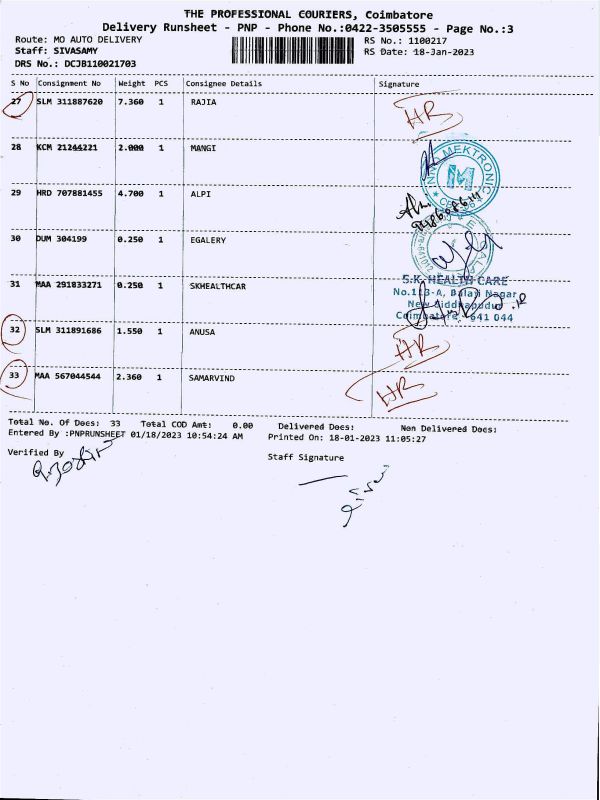 THE PROFESSIONAL COURIERS, Coimbatore
Delivery Runsheet - PNP - Phone No.:0422-3505555 - Page No.:3
Route: MO AUTO DELIVERY RS No.: 1100217
Staff: SIVASAMY RS Date: 18-Jan-2023
DRS No.: DCJB110021703
S No Consignment No Weight PCS Consignee Details Signature
27 SLM 311887620 7.360 1 RAJIA HR
28 KCM 21244221 2.000 1 MANGI
MEKTRONIC
M
29 HRD 707881455 4.700 1 ALPI
30 DUM 304199 0.250 1 EGALERY
31 MAA 291833271 0.250 1 SKHEALTHCAR
S.K. HEALTH CARE
No.113-A, Balaji Nagar
New Siddhapudur
Coimbatore - 641 044
32 SLM 311891686 1.550 1 ANUSA HR
33 MAA 567044544 2.360 1 SAMARVIND HR
Total No. Of Docs: 33 Total COD Amt: 0.00 Delivered Docs: Non Delivered Docs:
Entered By :PNPRUNSHEET 01/18/2023 10:54:24 AM Printed On: 18-01-2023 11:05:27
Verified By
Staff Signature